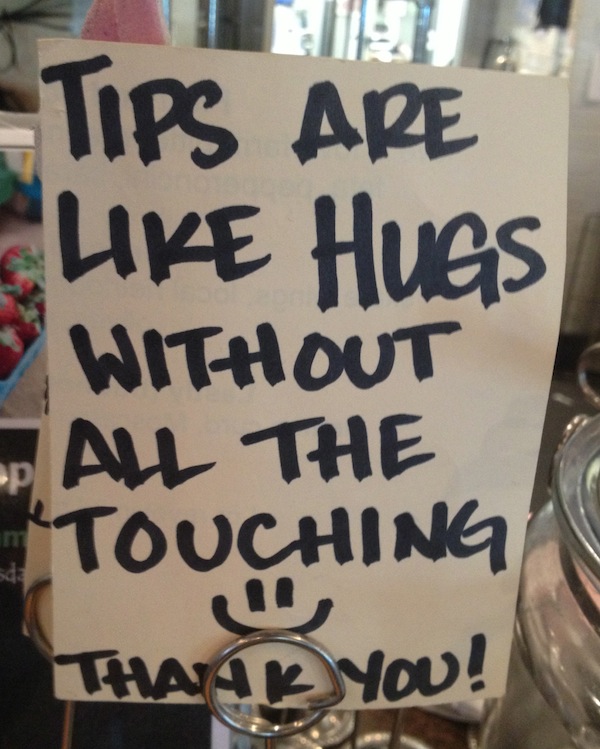 TIPS ARE
LIKE HUGS
WITHOUT
ALL THE
TOUCHING
THANK YOU!